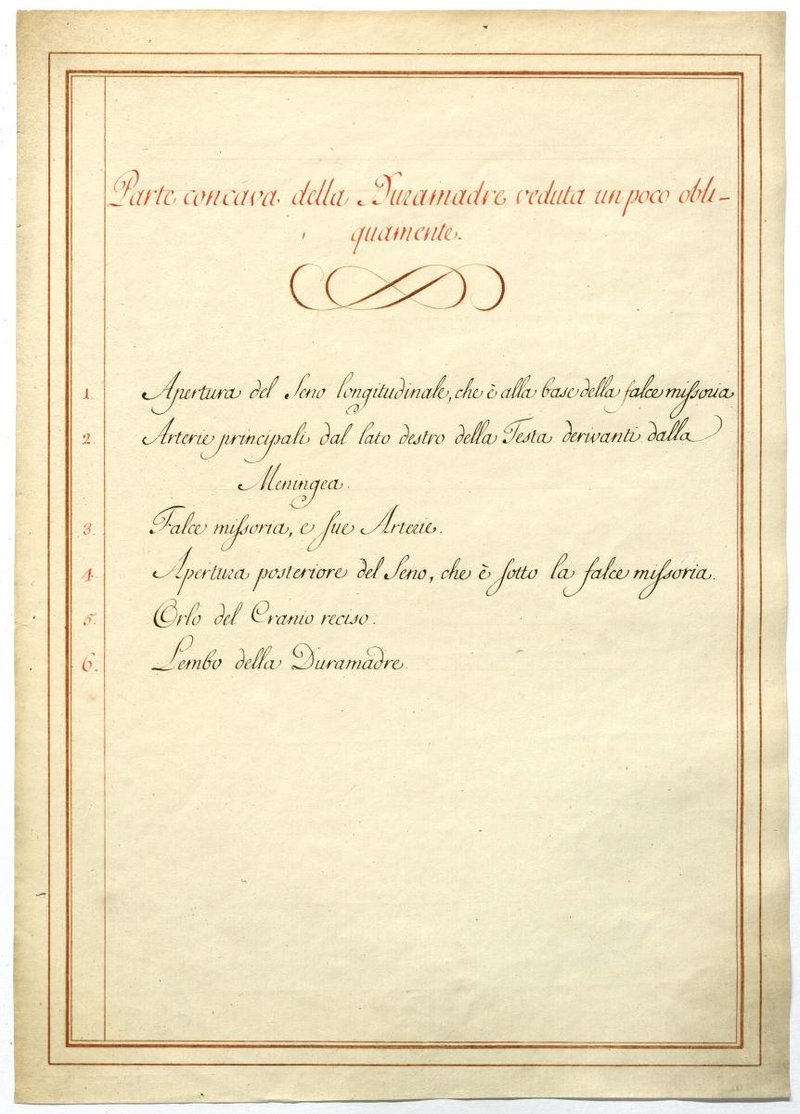 Parte concava della Duramadre veduta un poco obli-
quamente.
1. Apertura del Seno longitudinale, che è alla base della falce miſsoria
2. Arterie principali dal lato destro della Testa derivanti dalla
Meningea.
3. Falce miſsoria, e ſue Arterie.
4. Apertura posteriore del Seno, che è ſotto la falce miſsoria.
5. Orlo del Cranio reciso.
6. Lembo della Duramadre.